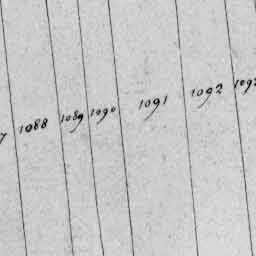 1088 1089 1090 1091 1092